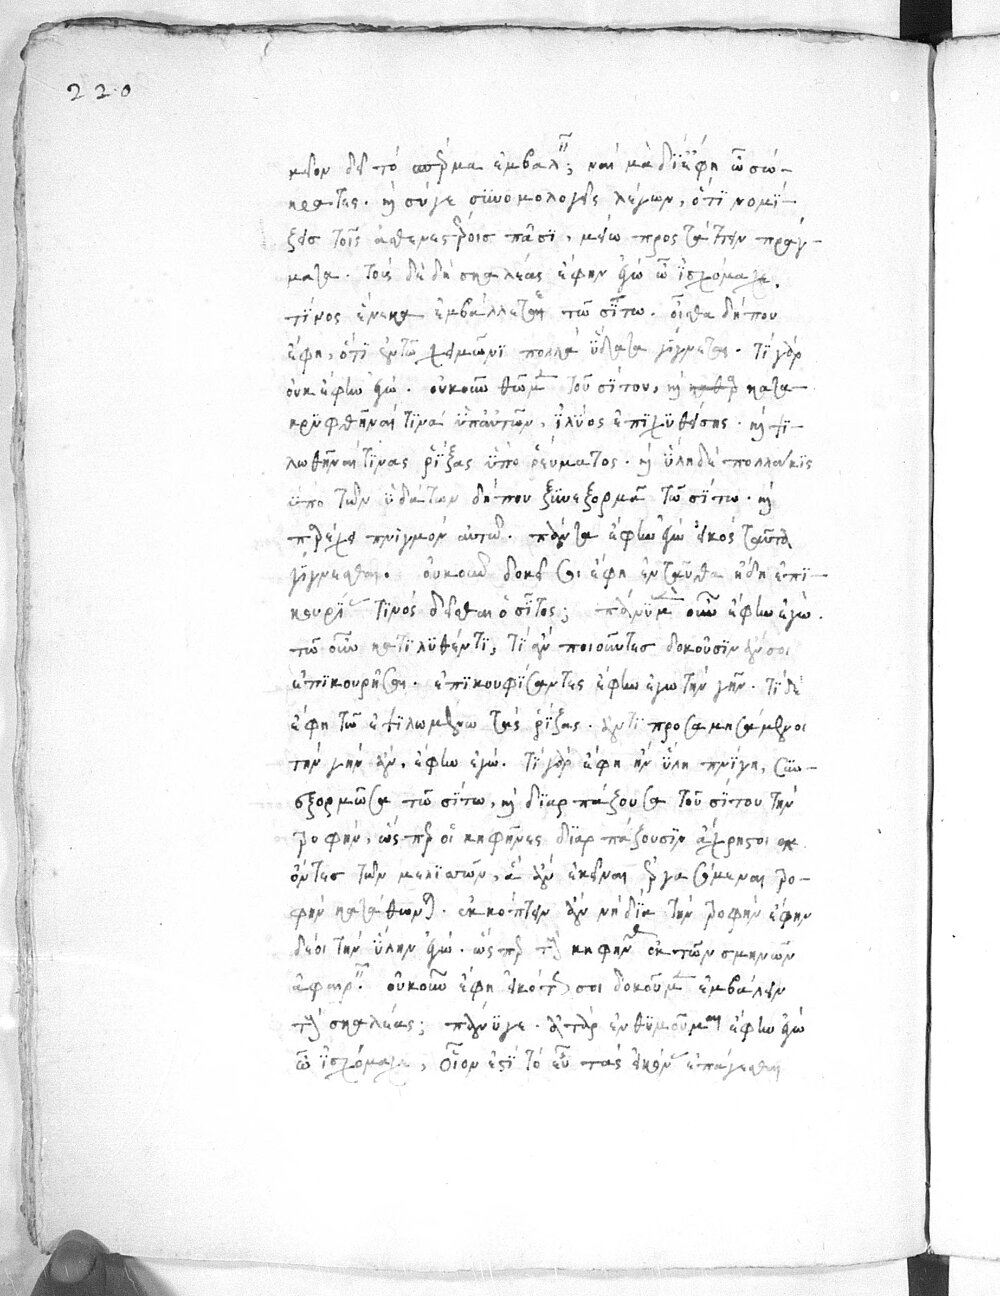 220
μεῖον δεῖ τὸ σπέρμα ἐμβαλεῖν; ναὶ μὰ δϊ ἔφη ὦ σώ-
κρατες. καὶ σύγε συνομολογεῖς λέγων, ὅτι νομΐ-
ζεις τοῖς ἀσθενεστέροις πᾶσϊ, μείω προστάττειν πράγ-
ματα. τοὺς δὲ δὴ σκαλέας ἔφην ἐγὼ ὦ ἰσχόμαχε,
τίνος ἕνεκα ἐμβάλλετε τῶ σίτω. οἶσθα δήπου
ἔφη, ὅτι ἐν τῶ χειμῶνϊ πολλὰ ὕδατα γίγνεται. τί γὰρ
οὐκ ἔφην ἐγώ. οὐκοῦν θῶμεν τοῦ σίτου, καὶ κατα-
κρυφθῆναί τινα ὑπ' αὐτῶν, ἰλύος ἐπιχυθείσης. καὶ ψι-
λωθῆναί τινας ῥίζας ὑπὸ ῥεύματος. καὶ ὕλη δὲ πολλάκις
ὑπὸ τῶν ὑδάτων δήπου ξυνεξορμᾶ τῶ σίτω. καὶ
παρέχει πνιγμὸν αὐτῶ. πάντα ἔφην ἐγὼ εἰκὸς ταῦτα
γίγνεσθαι. οὐκοῦν δοκεῖ σοι ἔφη ἐνταῦθα ἤδη ἐπι-
κουρίας τινὸς δεῖσθαι ὁ σῖτος; πάνυ μὲν οὖν ἔφην ἐγώ.
τῶ οὖν κατιλυθέντι, τί ἂν ποιοῦντες δοκοῦσιν ἄν σοι
ἐπικουρῆσαι. ἐπικουφίσαντες ἔφην ἐγὼ τὴν γῆν. τί δὲ
ἔφη τῶ ἐψιλωμένω τὰς ῥίζας. ἀντιπροσαμησάμενοι
τὴν γῆν ἄν, ἔφην ἐγώ. τί γὰρ ἔφη ἢν ὕλη πνίγη, συν-
εξορμῶσα τῶ σίτω, καὶ διαρπάζουσα τοῦ σίτου τὴν
τροφὴν, ὥσπερ οἱ κηφῆνες διαρπάζουσιν ἄχρηστοι
ὄντες τῶν μελισσῶν, ἃ ἂν ἐκεῖναι ἐργασάμεναι τρο-
φὴν καταθῶνται. ἐκκόπτειν ἂν νὴ δία τὴν τροφὴν ἔφην
δέοι τὴν ὕλην ἐγώ. ὥσπερ τοὺς κηφῆνας ἐκ τῶν σμηνῶν
ἀφαιρεῖν. οὐκοῦν ἔφη εἰκότως σοι δοκοῦμεν ἐμβαλεῖν
τοὺς σκαλέας; πάνυγε. ἀτὰρ ἐνθυμοῦμαι ἔφην ἐγὼ
ὦ ἰσχόμαχε, οἷον ἐστὶ τὸ εὖ τὰς εἰκόνας ἐπάγεσθαι